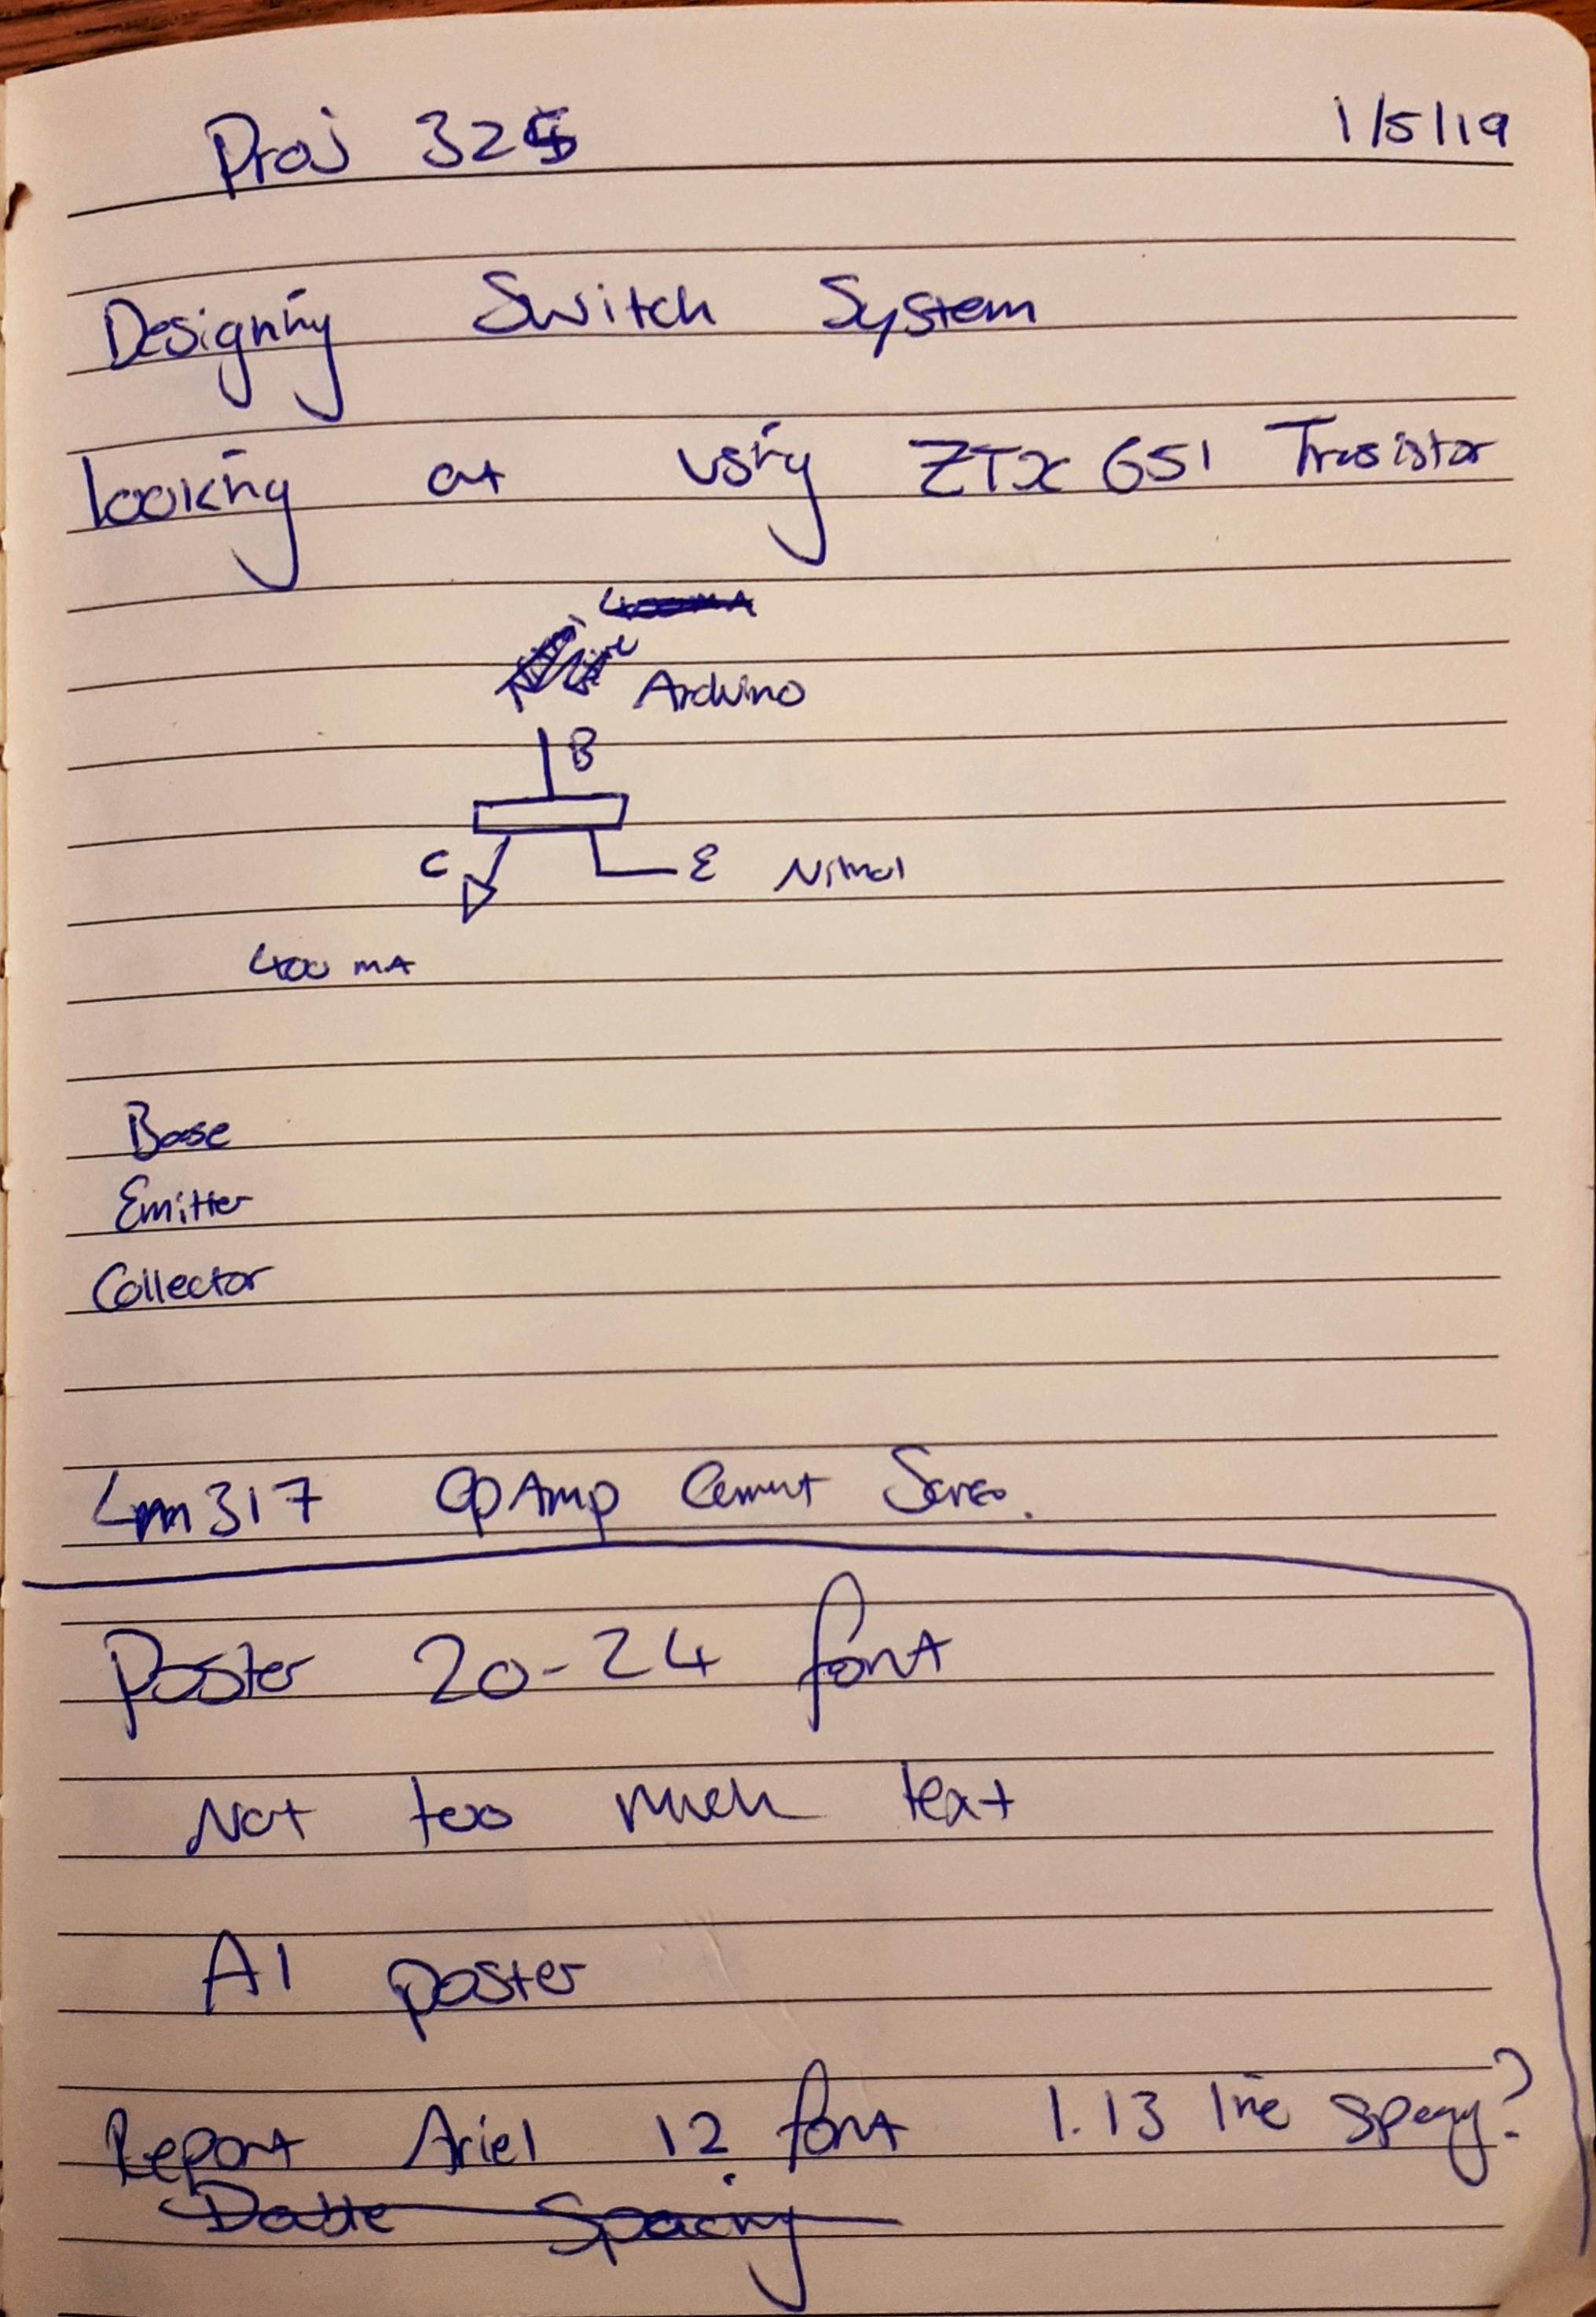 Proj 325 1/5/19
Designing Switch System
looking at using ZTX 651 Trasistor
400mA
Arduino
B
C E
400 mA
Base
Emitter
Collector
Lm317 Op Amp
Poster 20-24 font
Not too much text
A1 poster
Report Ariel 12 font 1.13 line spacing?
Double Spacing